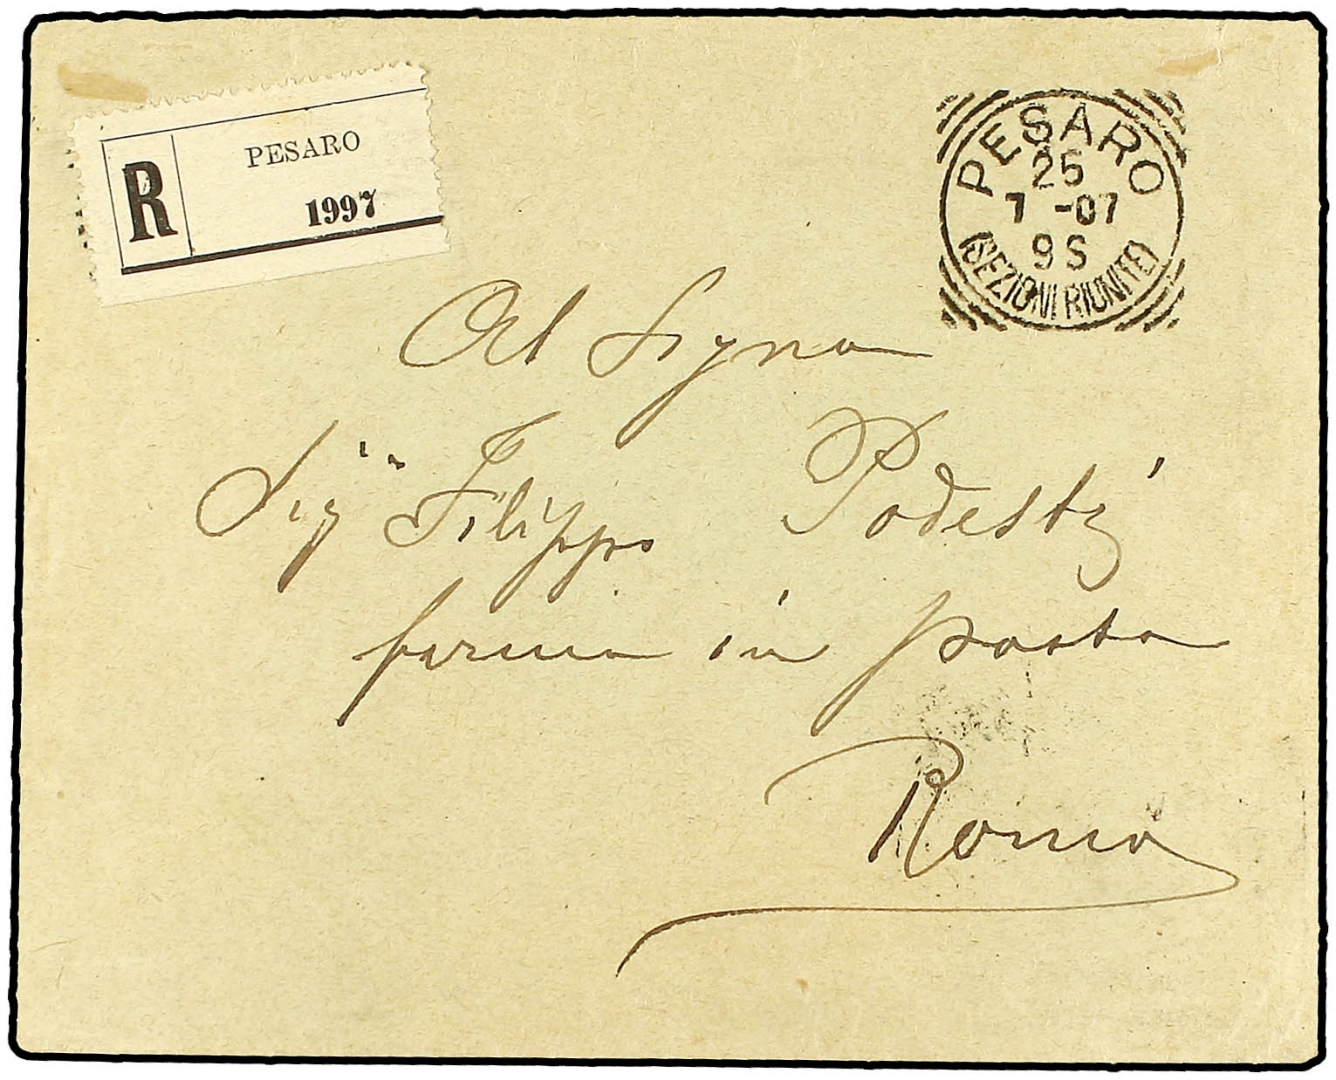 R
PESARO
1997
PESARO
25
7 -07
9S
(SEZIONI RIUNITE)
Al Signor
Sig Filippo Podesti
ferma in posta
Roma